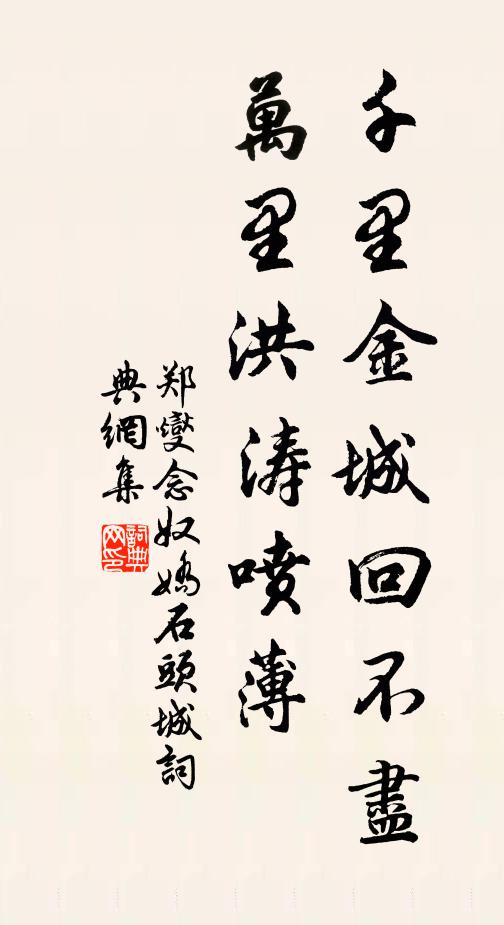 千里金城回不盡
萬里洪濤噴薄
郑燮念奴嬌石頭城詞
典網集
詞典
网印